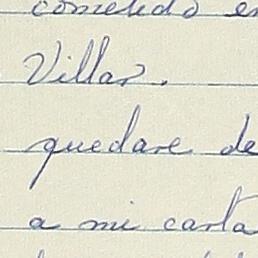 cometido en
Villar.
quedare de
a mi carta